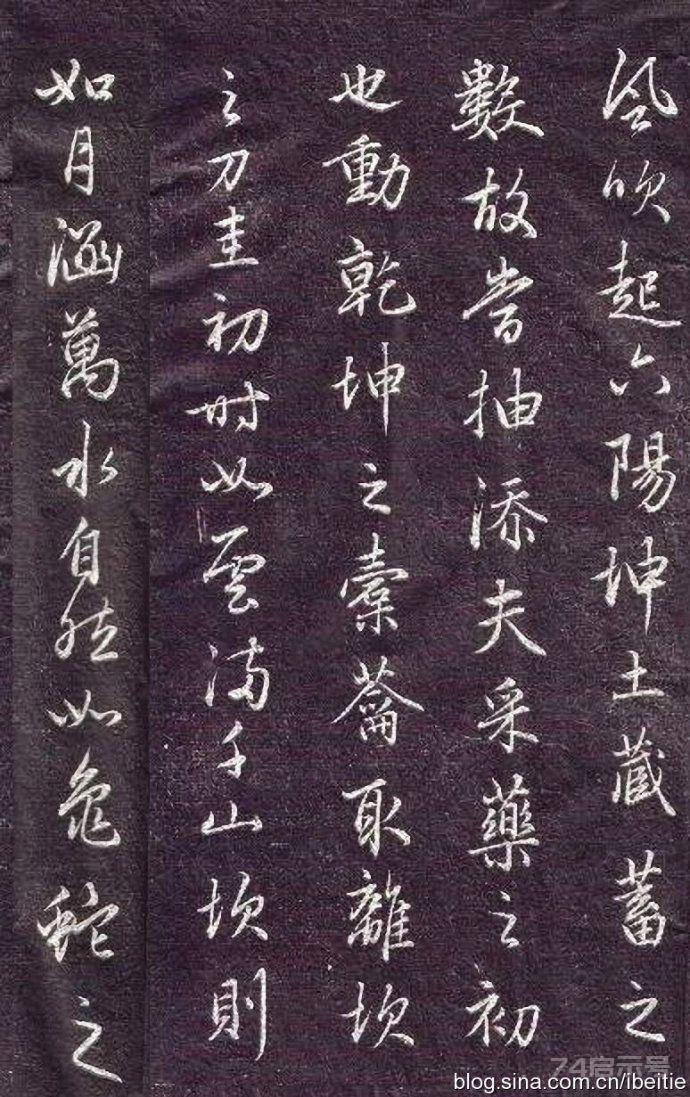 風吹起六陽坤土藏蓄之
數故嘗抽添夫采藥之初
也動乾坤之橐籥取離坎
之刀圭初时如雲滿千山次則
如月涵萬水自然如龜蛇之
74启示号
blog.sina.com.cn/lbeitie